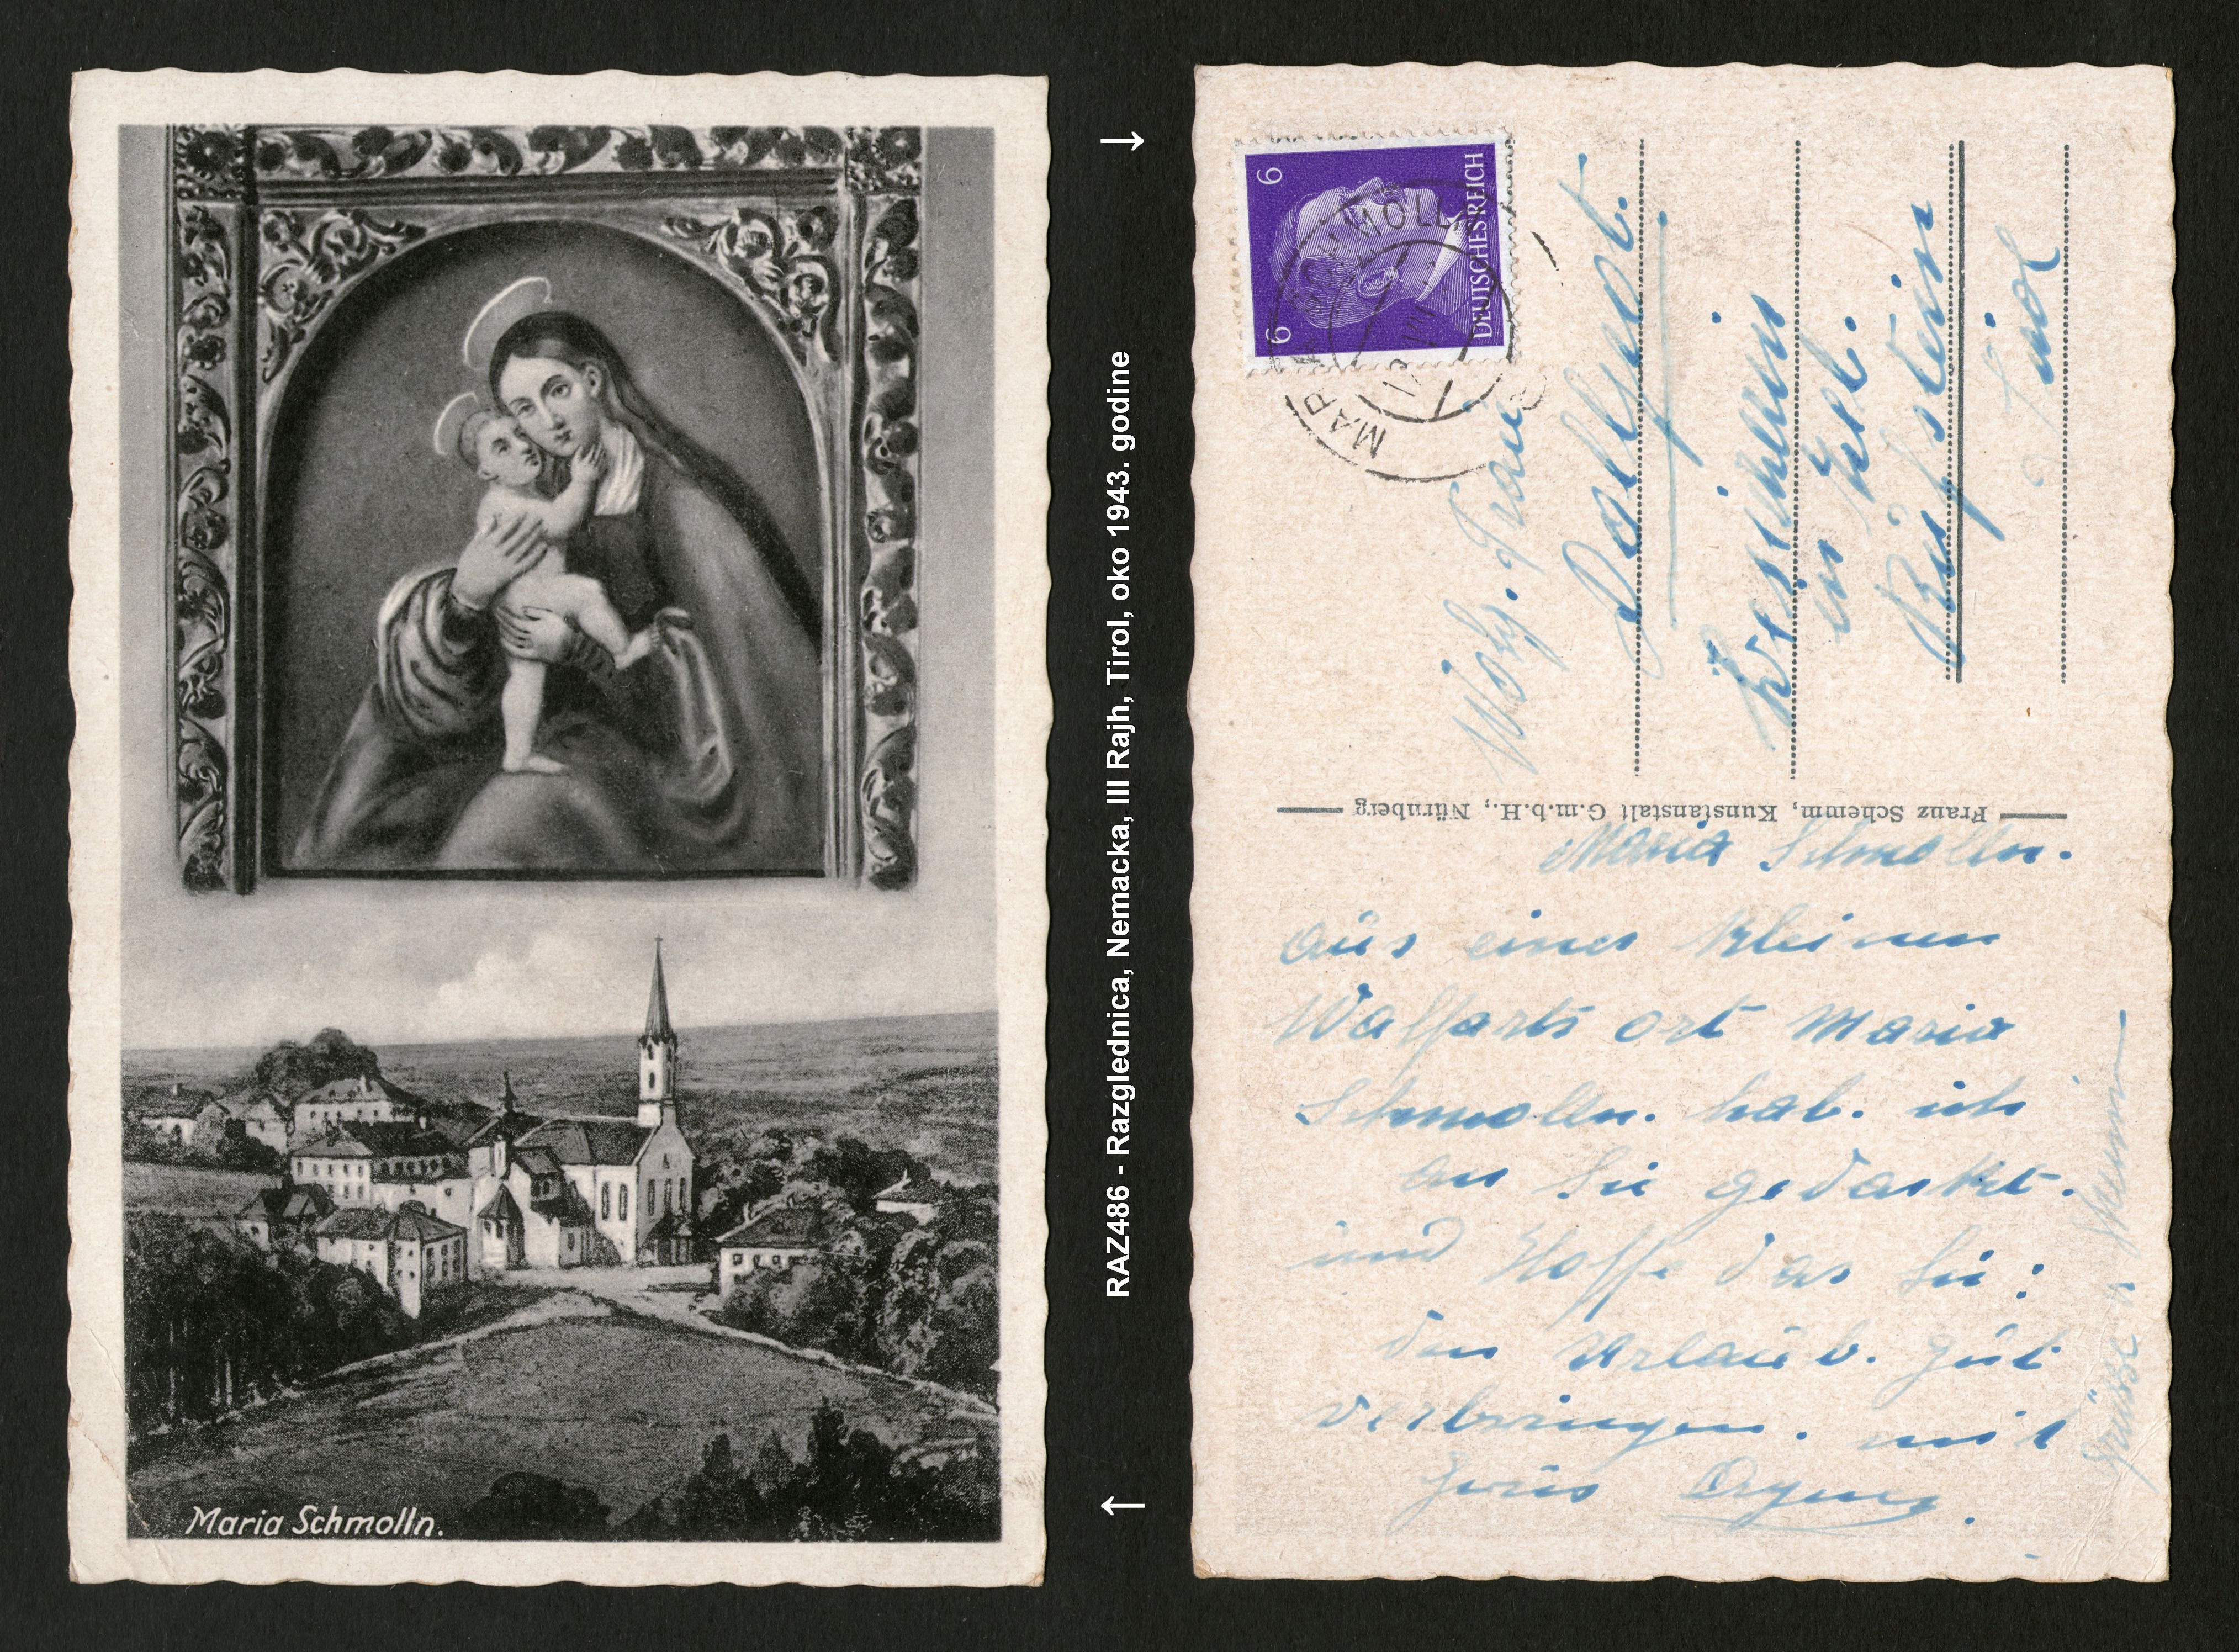 Maria Schmolln.
RAZ486 - Razglednica, Nemacka, III Rajh, Tirol, oko 1943. godine
6 6
DEUTSCHES REICH
MARIA SCHMOLLN
Frau
in Tirol
Kufstein
Tirol
Franz Schemm, Kunstanstalt G.m.b.H., Nürnberg
Maria Schmolln.
aus einen kleinen
Walfarts ort Maria
Schmolln. hab. ich
an Sie gedankt.
und Hoffe das Sie:
den Urlaub. gut
verbringen. mit
Grüsse